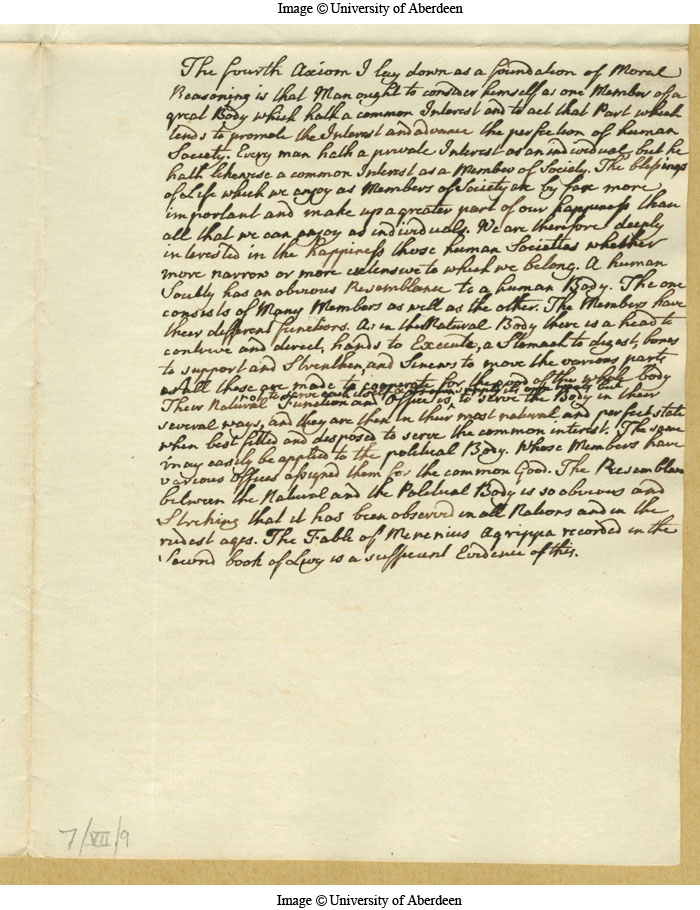 Image © University of Aberdeen
The fourth Axiom I lay down as a foundation of Moral
Reasoning is that Man ought to consider himself as one Member of a
great Body which hath a common Interest and to act that Part which
tends to promote the Interest and advance the perfection of human
Society. Every man hath a private Interest as an individual, but he
hath likewise a common Interest as a Member of Society. The blessings
of Life which we enjoy as Members of Society are by far more
important and make up a greater part of our happiness than
all that we can enjoy as individuals. We are therefore deeply
interested in the happiness those human Societies whether
more narrow or more extensive to which we belong. A human
Society has an obvious Resemblance to a human Body. The one
consists of Many Members as well as the other. The Members have
their different functions. As in the Natural Body there is a head to
contrive and direct, hands to Execute, a Stomach to digest, bones
to support and Strenthen, and Sinews to move the various parts
as all these are made to cooperate for the good of the whole body
not to serve each itself but
Their Natural Function and Office is ^ to serve the Body in their
several ways, and they are then in their most natural and perfect state
when best fitted and desposed to serve the common interest. The same
may easily be applied to the political Body. Whose Members have
various offices assigned them for the common Good. The Resemblance
between the Natural and the Political Body is so obvious and
Striking that it has been observed in all Nations and in the
rudest ages. The Fable of Menenius Agrippa recorded in the
Second book of Livy is a sufficient Evidence of this.
7/VII/9
Image © University of Aberdeen